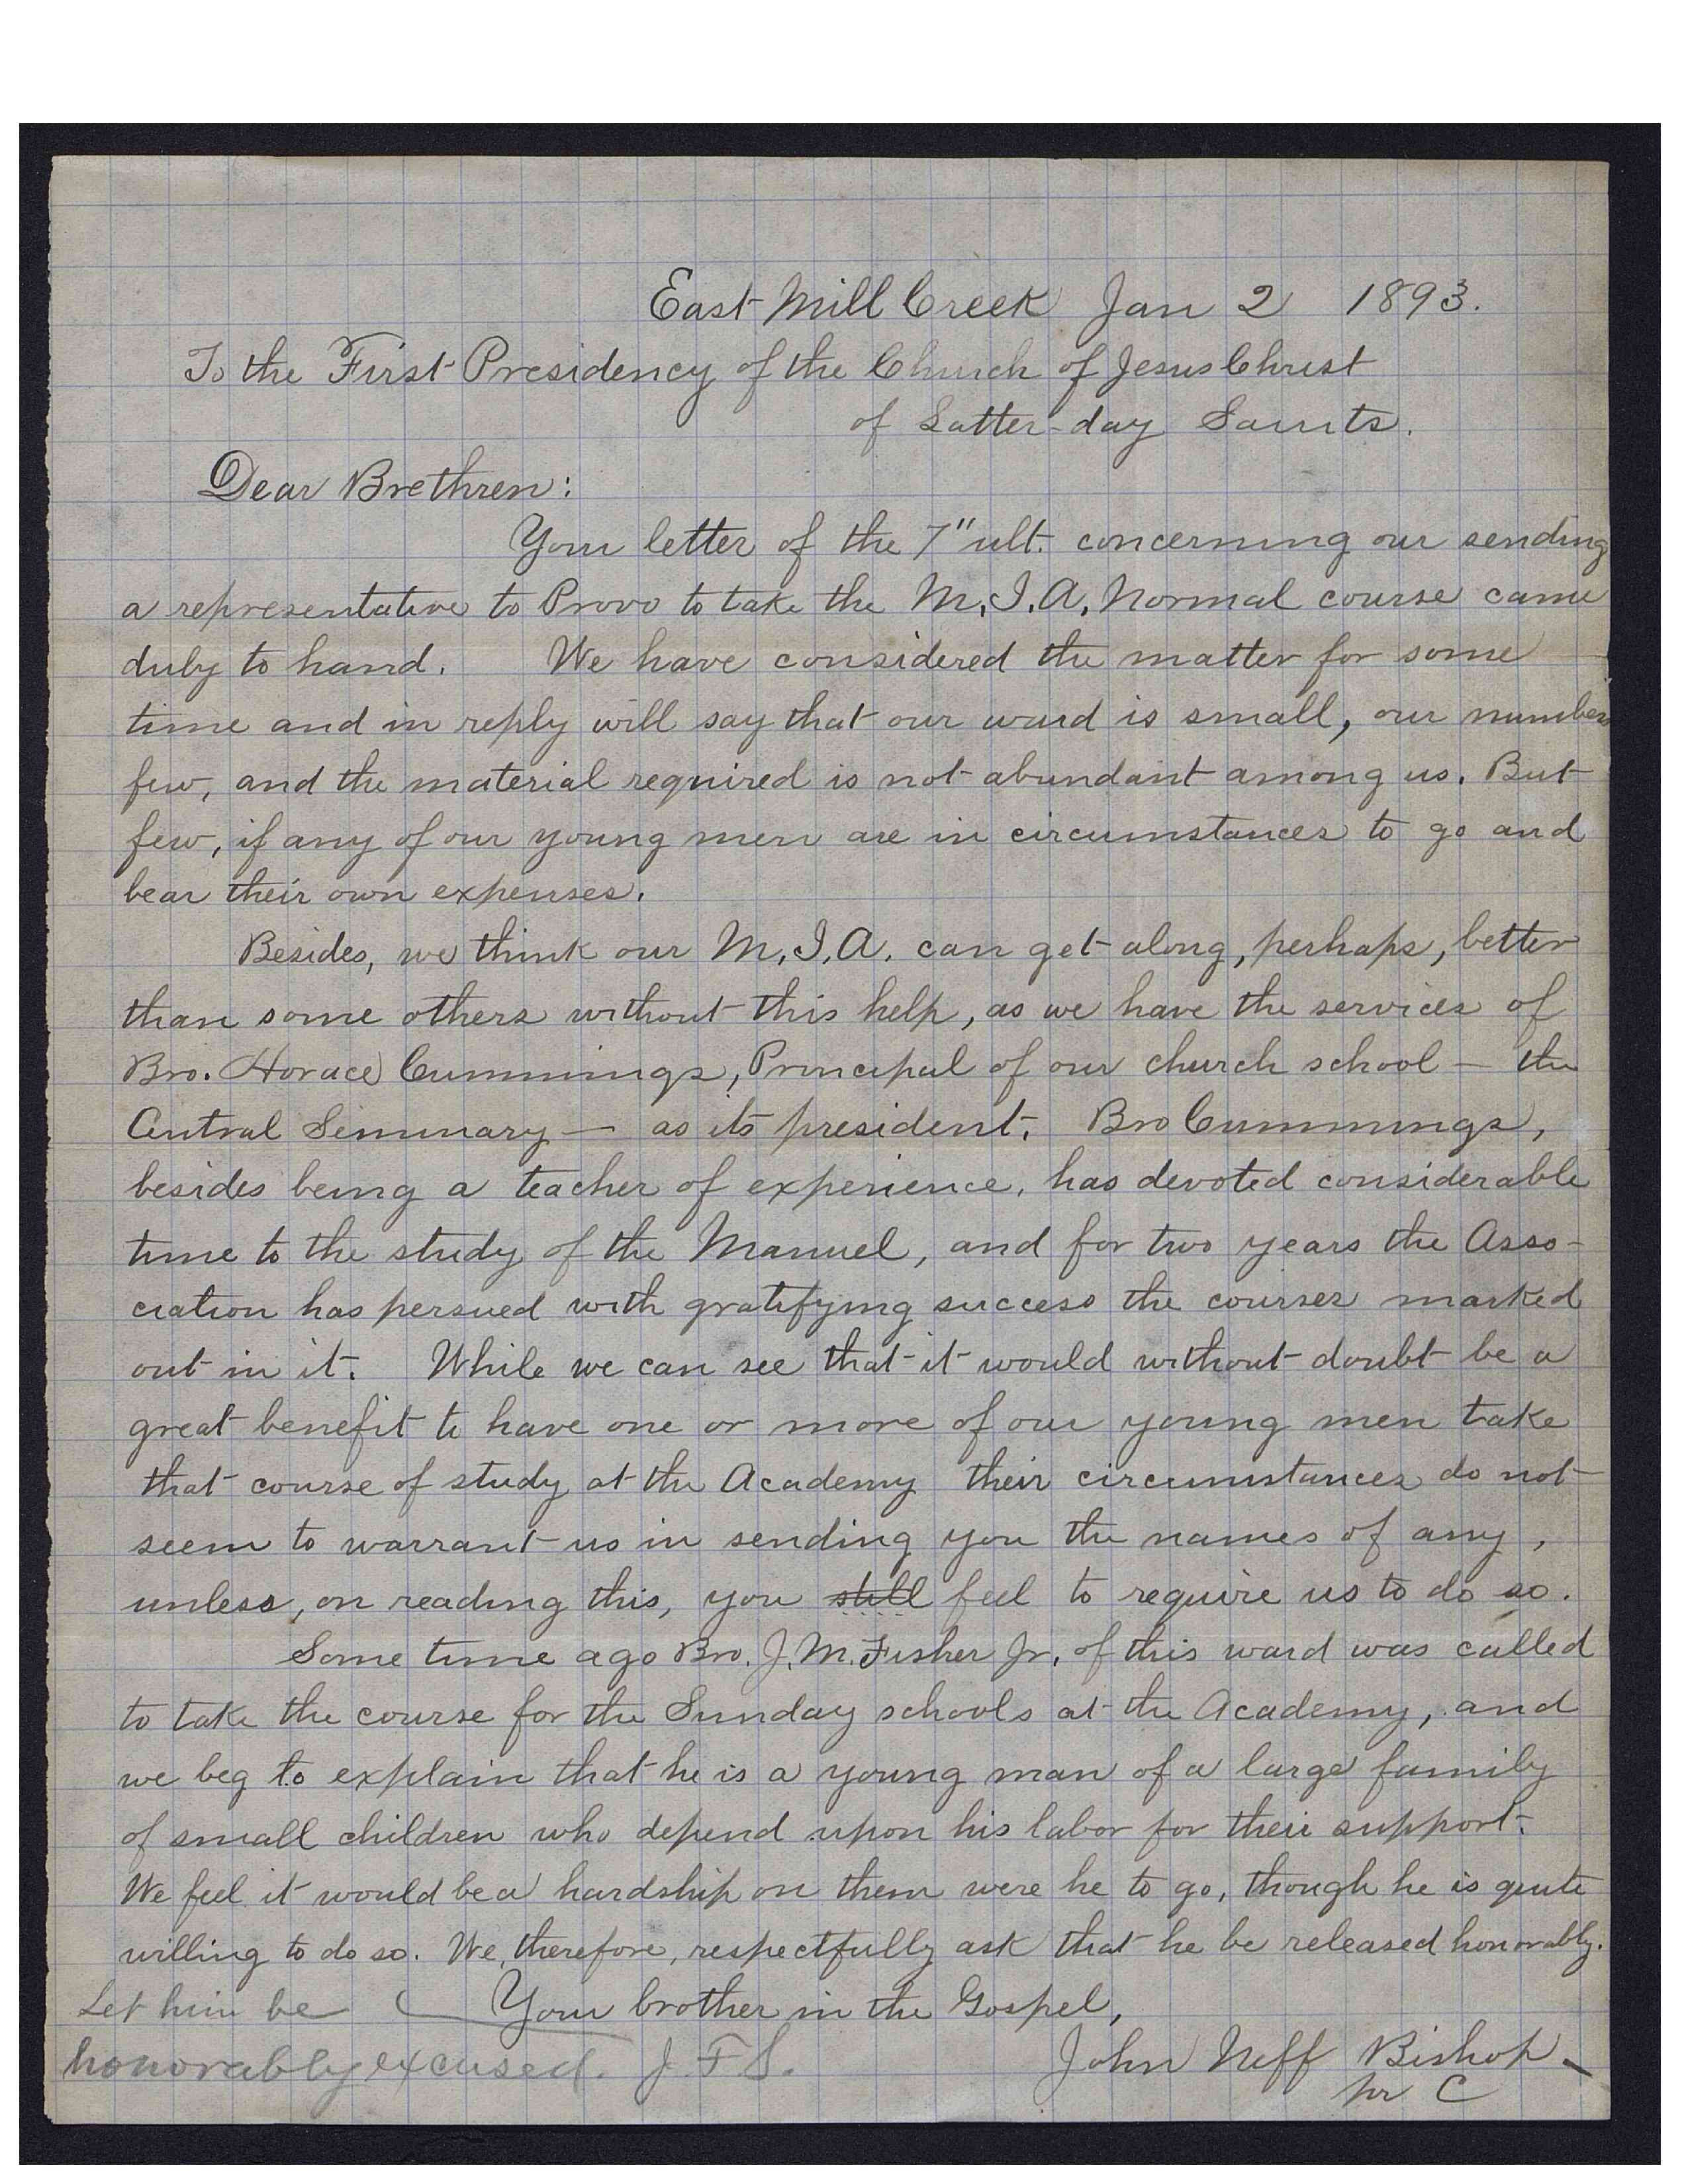 East Mill Creek Jan 2 1893.
To the First Presidency of the Church of Jesus Christ
of Latter-day Saints.
Dear Brethren:
Your letter of the 7" ult. concerning our sending
a representative to Provo to take the M.I.A. Normal course came
duly to hand. We have considered the matter for some
time and in reply will say that our ward is small, our numbers
few, and the material required is not abundant among us. But
few, if any of our young men are in circumstances to go and
bear their own expenses.
Besides, we think our M.I.A. can get along, perhaps, better
than some others without this help, as we have the services of
Bro. Horace Cummings, Principal of our church school — the
Central Seminary — as its president. Bro Cummings,
besides being a teacher of experience, has devoted considerable
time to the study of the Manuel, and for two years the Asso-
ciation has persued with gratifying success the courses marked
out in it. While we can see that it would without doubt be a
great benefit to have one or more of our young men take
that course of study at the Academy their circumstances do not
seem to warrant us in sending you the names of any,
unless, on reading this, you still feel to require us to do so.
Some time ago Bro. J. M. Fisher Jr. of this ward was called
to take the course for the Sunday schools at the Academy, and
we beg to explain that he is a young man of a large family
of small children who depend upon his labor for their support.
We feel it would be a hardship on them were he to go, though he is quite
willing to do so. We, therefore, respectfully ask that he be released honorably.
Let him be Your brother in the Gospel,
honorably excused. J. F. S. John Neff Bishop
pr C